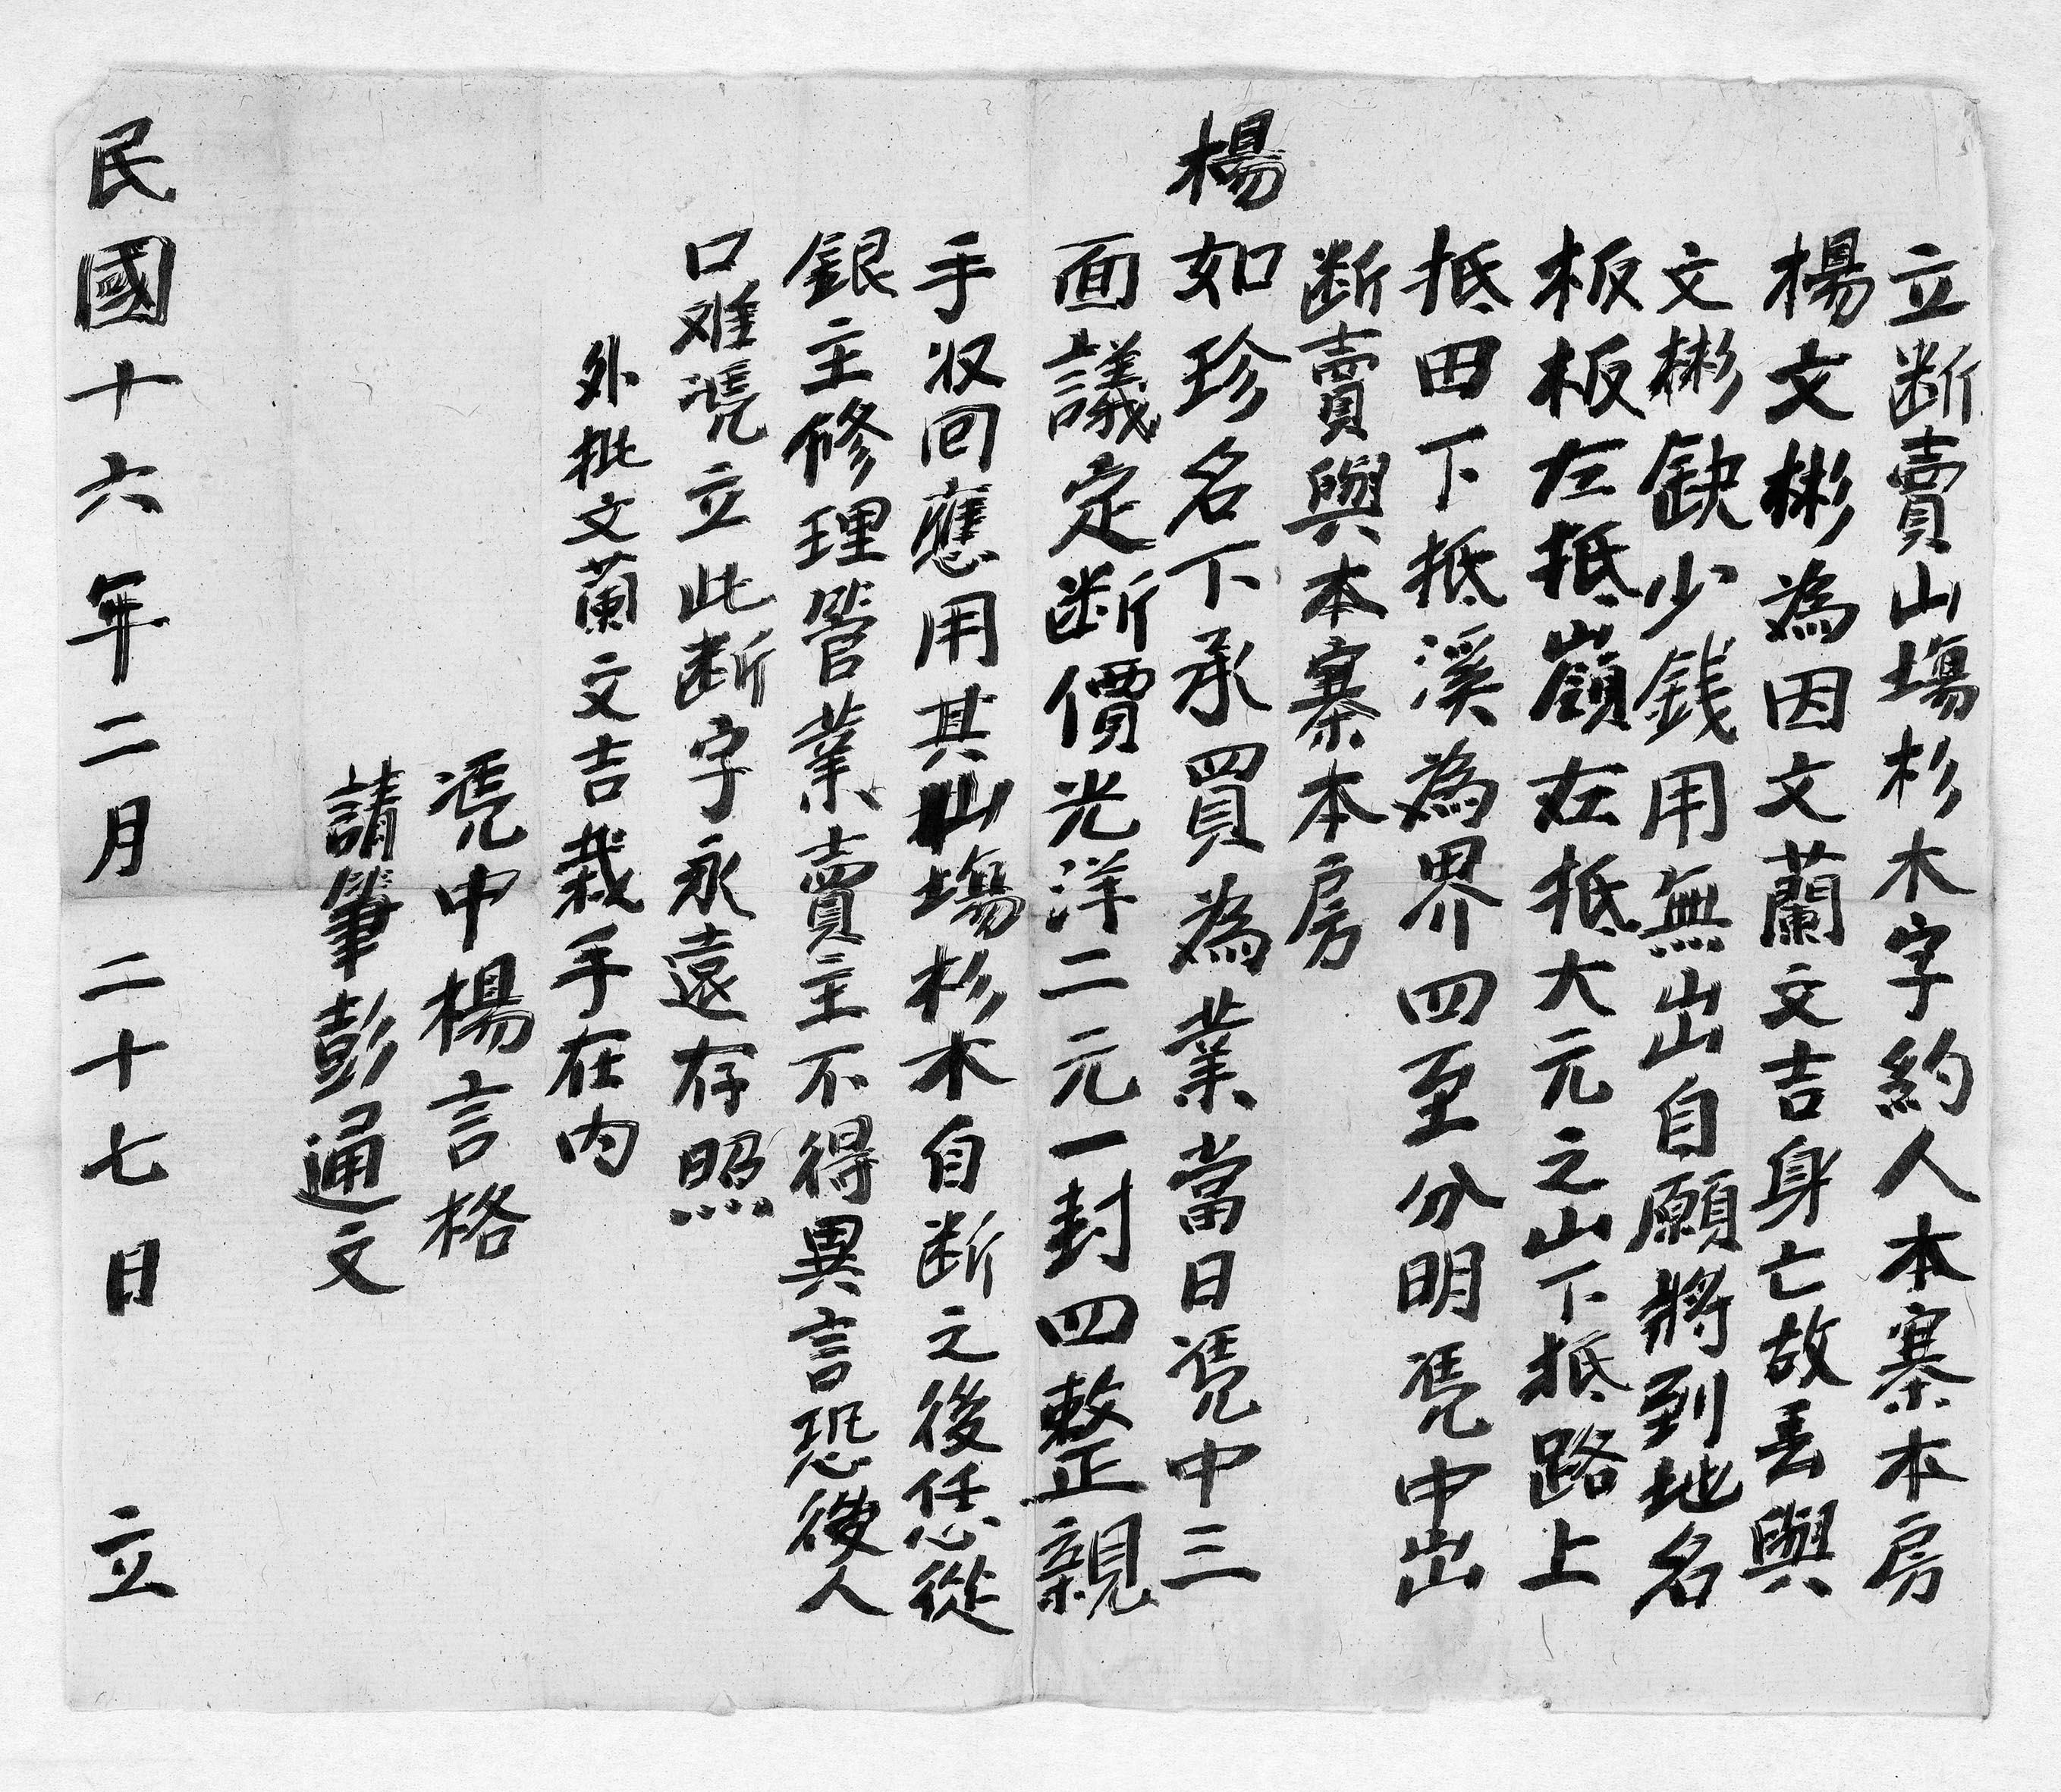 立断賣山塲杉木字約人本寨本房
楊文彬為因文蘭文吉身亡故丢與
文彬缺少銭用無出自願將到地名
板板左抵嶺右抵大元之山下抵路上
抵田下抵溪為界四至分明凴中出
断賣與本寨本房
楊如珍名下承買為業當日凴中三
面議定断價光洋二元一封四整親
手收回應用其山塲杉木自断之後任從
銀主修理管業賣主不得異言恐後人
口难凴立此断字永遠存照
外批文蘭文吉栽手在内
凴中楊言格
請筆彭通文
民國十六年二月二十七日 立